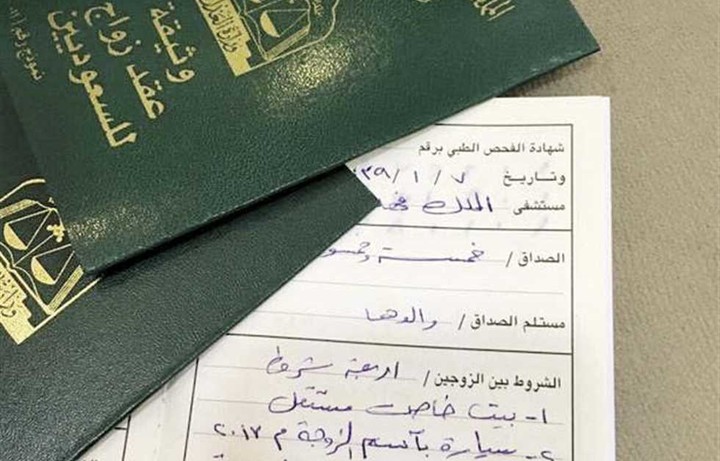 وثيقة
عقد زواج
للسعوديين
وزارة العدل
شهادة الفحص الطبي برقم
وتاريخ ٧ / ١ / ٣٩
مستشفى الملك
الصداق / خمسة
مستلم الصداق / والدها
الشروط بين الزوجين / اربعة شروط
١- بيت خاص مستقل
٢- سيارة بأسم الزوجة م ٢٠١٧